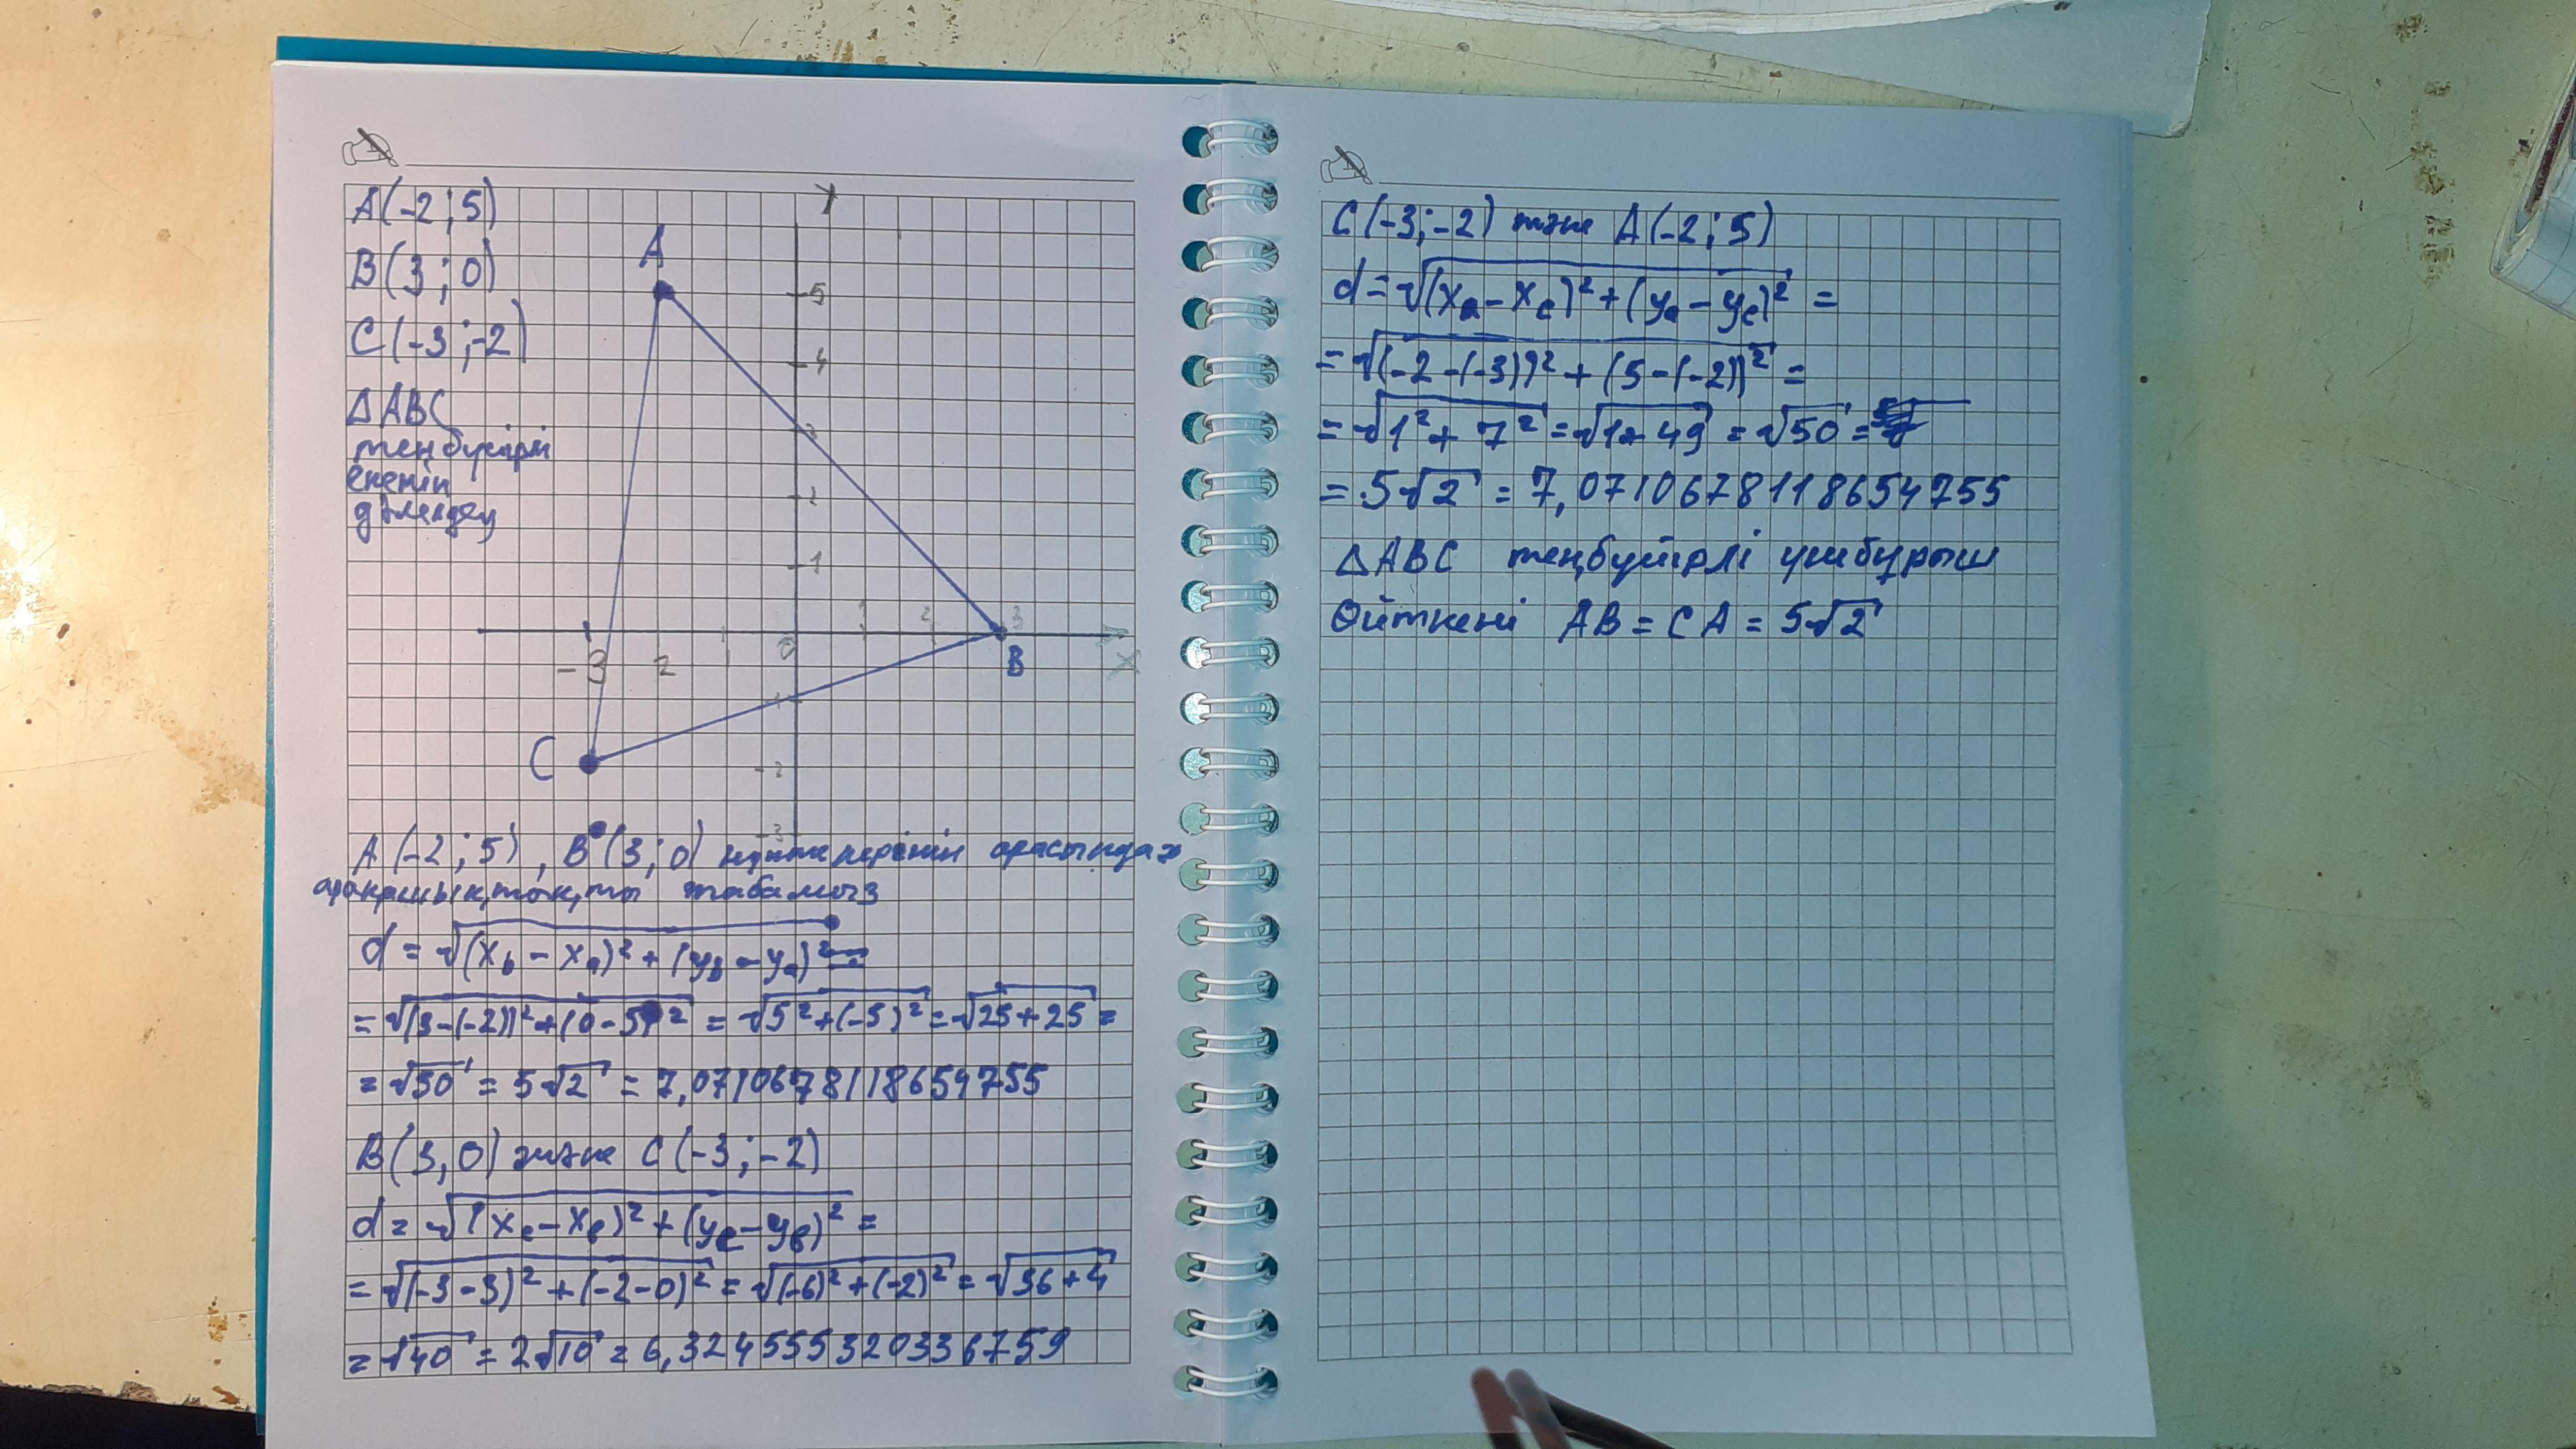 A(-2;5)
B(3;0)
C(-3;-2)
ΔABC
теңбүйірлі
екенін
дәлелдеу
Y
A
5
4
3
2
1
-3 2 1 0 1 2 3
B
X
1
C
-2
-3
A(-2;5), B(3;0) нүктелерінің арасындағы
арақашықтықты табамыз
d = √((x_b - x_a)² + (y_b - y_a)²) =
= √((3-(-2))² + (0-5)²) = √(5²+(-5)²) = √(25+25) =
= √50 = 5√2 = 7,0710678118654755
B(3,0) және C(-3;-2)
d = √((x_c - x_b)² + (y_c - y_b)²) =
= √((-3-3)² + (-2-0)²) = √((-6)²+(-2)²) = √(36+4)
= √40 = 2√10 = 6,324555320336759
C(-3;-2) және A(-2;5)
d = √((x_a - x_c)² + (y_a - y_c)²) =
= √((-2-(-3))² + (5-(-2))²) =
= √(1² + 7²) = √(1+49) = √50 =
= 5√2 = 7,0710678118654755
ΔABC теңбүйірлі үшбұрыш
Өйткені AB = CA = 5√2